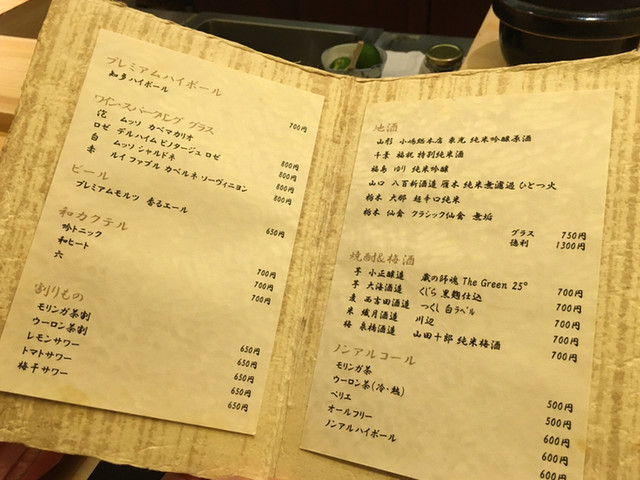 プレミアムハイボール
知多ハイボール 700円
ワイン・スパークリング グラス
泡 ムッソ カベマカリオ 800円
ロゼ デルハイム ピノタージュ ロゼ 800円
白 ムッソ シャルドネ 800円
赤 ルイ ファブル カベルネ ソーヴィニヨン 800円
ビール
プレミアムモルツ 香るエール 650円
和カクテル
吟トニック 700円
和ヒート 700円
六 700円
割りもの
モリンガ茶割 650円
ウーロン茶割 650円
レモンサワー 650円
トマトサワー 650円
梅干サワー 650円
地酒
山形 小嶋総本店 東光 純米吟醸原酒
千葉 福祝 特別純米酒
福島 ゆり 純米吟醸
山口 八百新酒造 雁木 純米無濾過 ひとつ火
栃木 大那 超辛口純米
栃木 仙禽 クラシック仙禽 無垢
グラス 750円
徳利 1300円
焼酎&梅酒
芋 小正醸造 蔵の師魂 The Green 25° 700円
芋 大海酒造 くじら 黒麹仕込 700円
麦 西吉田酒造 つくし 白ラベル 700円
米 繊月酒造 川辺 700円
梅 泉橋酒造 山田十郎 純米梅酒 700円
ノンアルコール
モリンガ茶 500円
ウーロン茶(冷・熱) 500円
ペリエ 600円
オールフリー 600円
ノンアルハイボール 600円